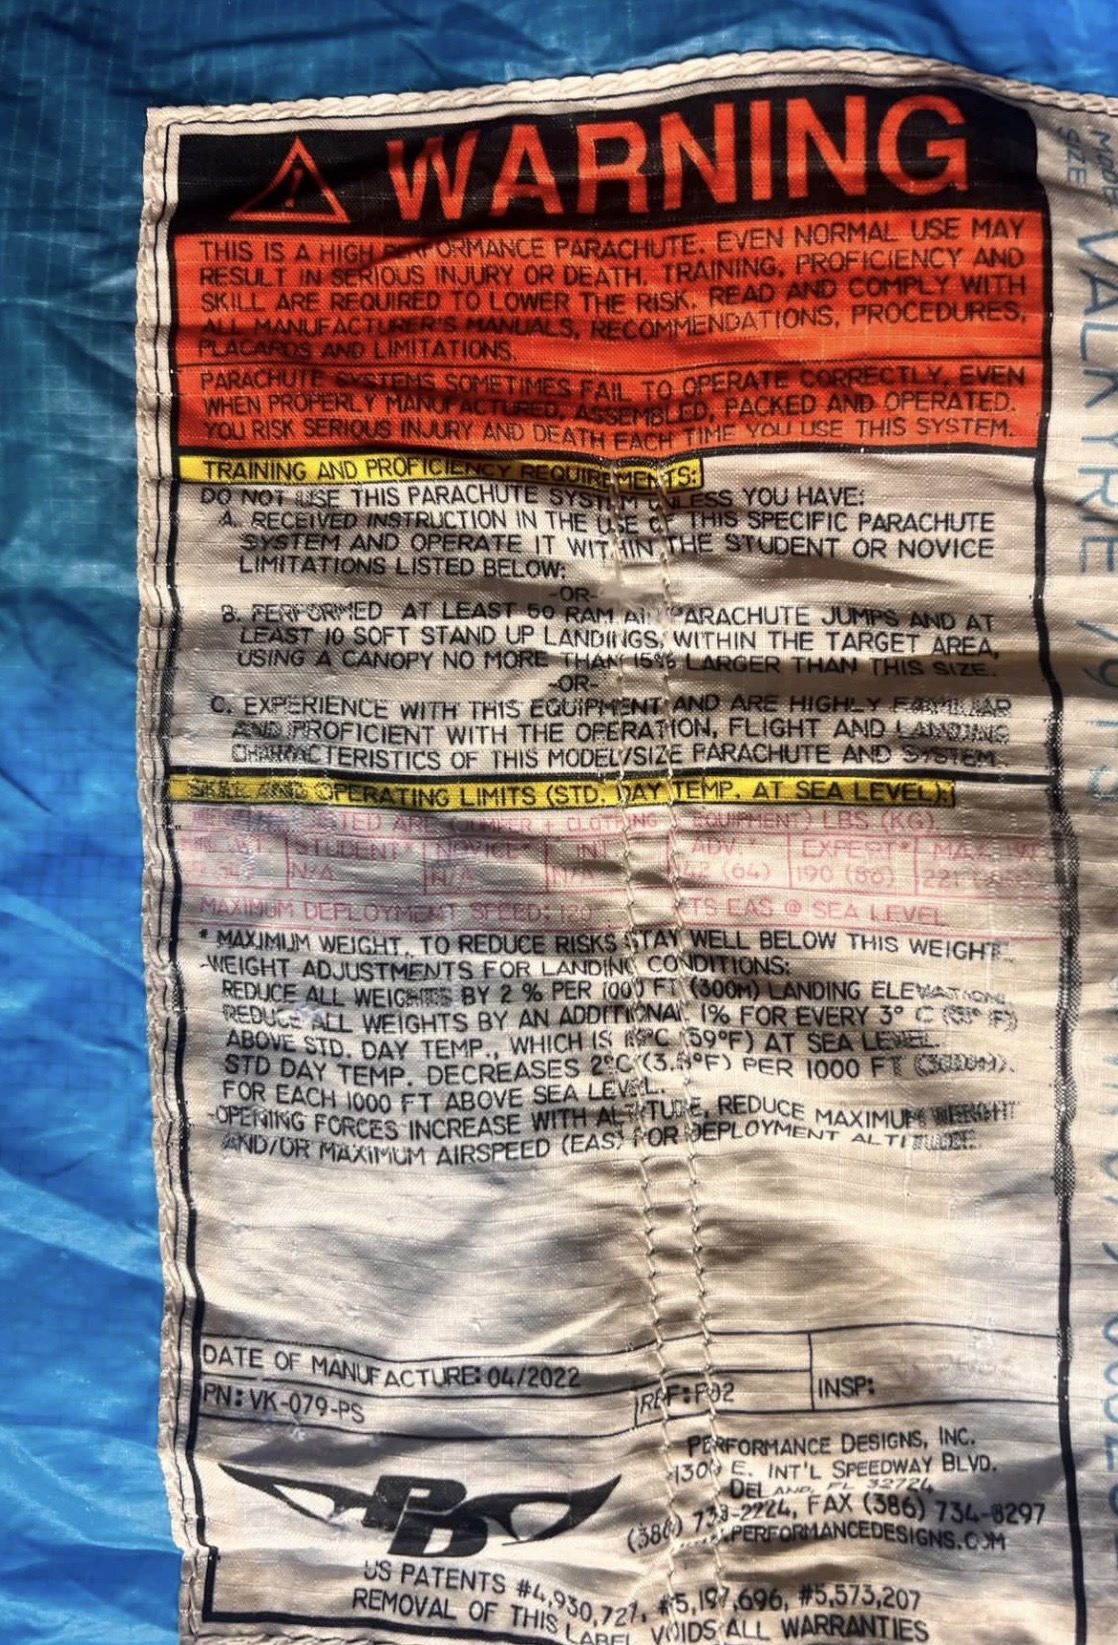 WARNING
THIS IS A HIGH PERFORMANCE PARACHUTE. EVEN NORMAL USE MAY
RESULT IN SERIOUS INJURY OR DEATH. TRAINING, PROFICIENCY AND
SKILL ARE REQUIRED TO LOWER THE RISK. READ AND COMPLY WITH
ALL MANUFACTURER'S MANUALS, RECOMMENDATIONS, PROCEDURES,
PLACARDS AND LIMITATIONS.
PARACHUTE SYSTEMS SOMETIMES FAIL TO OPERATE CORRECTLY, EVEN
WHEN PROPERLY MANUFACTURED, ASSEMBLED, PACKED AND OPERATED.
YOU RISK SERIOUS INJURY AND DEATH EACH TIME YOU USE THIS SYSTEM.
TRAINING AND PROFICIENCY REQUIREMENTS:
DO NOT USE THIS PARACHUTE SYSTEM UNLESS YOU HAVE:
A. RECEIVED INSTRUCTION IN THE USE OF THIS SPECIFIC PARACHUTE
SYSTEM AND OPERATE IT WITHIN THE STUDENT OR NOVICE
LIMITATIONS LISTED BELOW:
-OR-
B. PERFORMED AT LEAST 50 RAM AIR PARACHUTE JUMPS AND AT
LEAST 10 SOFT STAND UP LANDINGS, WITHIN THE TARGET AREA,
USING A CANOPY NO MORE THAN 15% LARGER THAN THIS SIZE.
-OR-
C. EXPERIENCE WITH THIS EQUIPMENT AND ARE HIGHLY FAMILIAR
AND PROFICIENT WITH THE OPERATION, FLIGHT AND LANDING
CHARACTERISTICS OF THIS MODEL/SIZE PARACHUTE AND SYSTEM.
SKILL AND OPERATING LIMITS (STD. DAY TEMP. AT SEA LEVEL):
LISTED ARE (JUMPER + CLOTHING EQUIPMENT) LBS (KG)
STUDENT* NOVICE* INT ADV.* EXPERT*
N/A N/A N/A 190 (86)
MAXIMUM DEPLOYMENT SPEED: 120 KTS EAS @ SEA LEVEL
* MAXIMUM WEIGHT, TO REDUCE RISKS STAY WELL BELOW THIS WEIGHT.
-WEIGHT ADJUSTMENTS FOR LANDING CONDITIONS:
REDUCE ALL WEIGHTS BY 2 % PER 1000 FT (300M) LANDING ELEVATION.
REDUCE ALL WEIGHTS BY AN ADDITIONAL 1% FOR EVERY 3° C (5° F)
ABOVE STD. DAY TEMP., WHICH IS 15°C (59°F) AT SEA LEVEL.
STD DAY TEMP. DECREASES 2°C (3.5°F) PER 1000 FT (300M).
FOR EACH 1000 FT ABOVE SEA LEVEL.
-OPENING FORCES INCREASE WITH ALTITUDE, REDUCE MAXIMUM WEIGHT
AND/OR MAXIMUM AIRSPEED (EAS) FOR DEPLOYMENT ALTITUDE.
DATE OF MANUFACTURE: 04/2022
PN: VK-079-PS REF: P02 INSP:
PD
PERFORMANCE DESIGNS, INC.
1300 E. INT'L SPEEDWAY BLVD.
DELAND, FL 32724
(386) 738-2224, FAX (386) 734-8297
WWW.PERFORMANCEDESIGNS.COM
US PATENTS #4,930,727, #5,197,696, #5,573,207
REMOVAL OF THIS LABEL VOIDS ALL WARRANTIES
MODEL VALKYRIE
SIZE 79